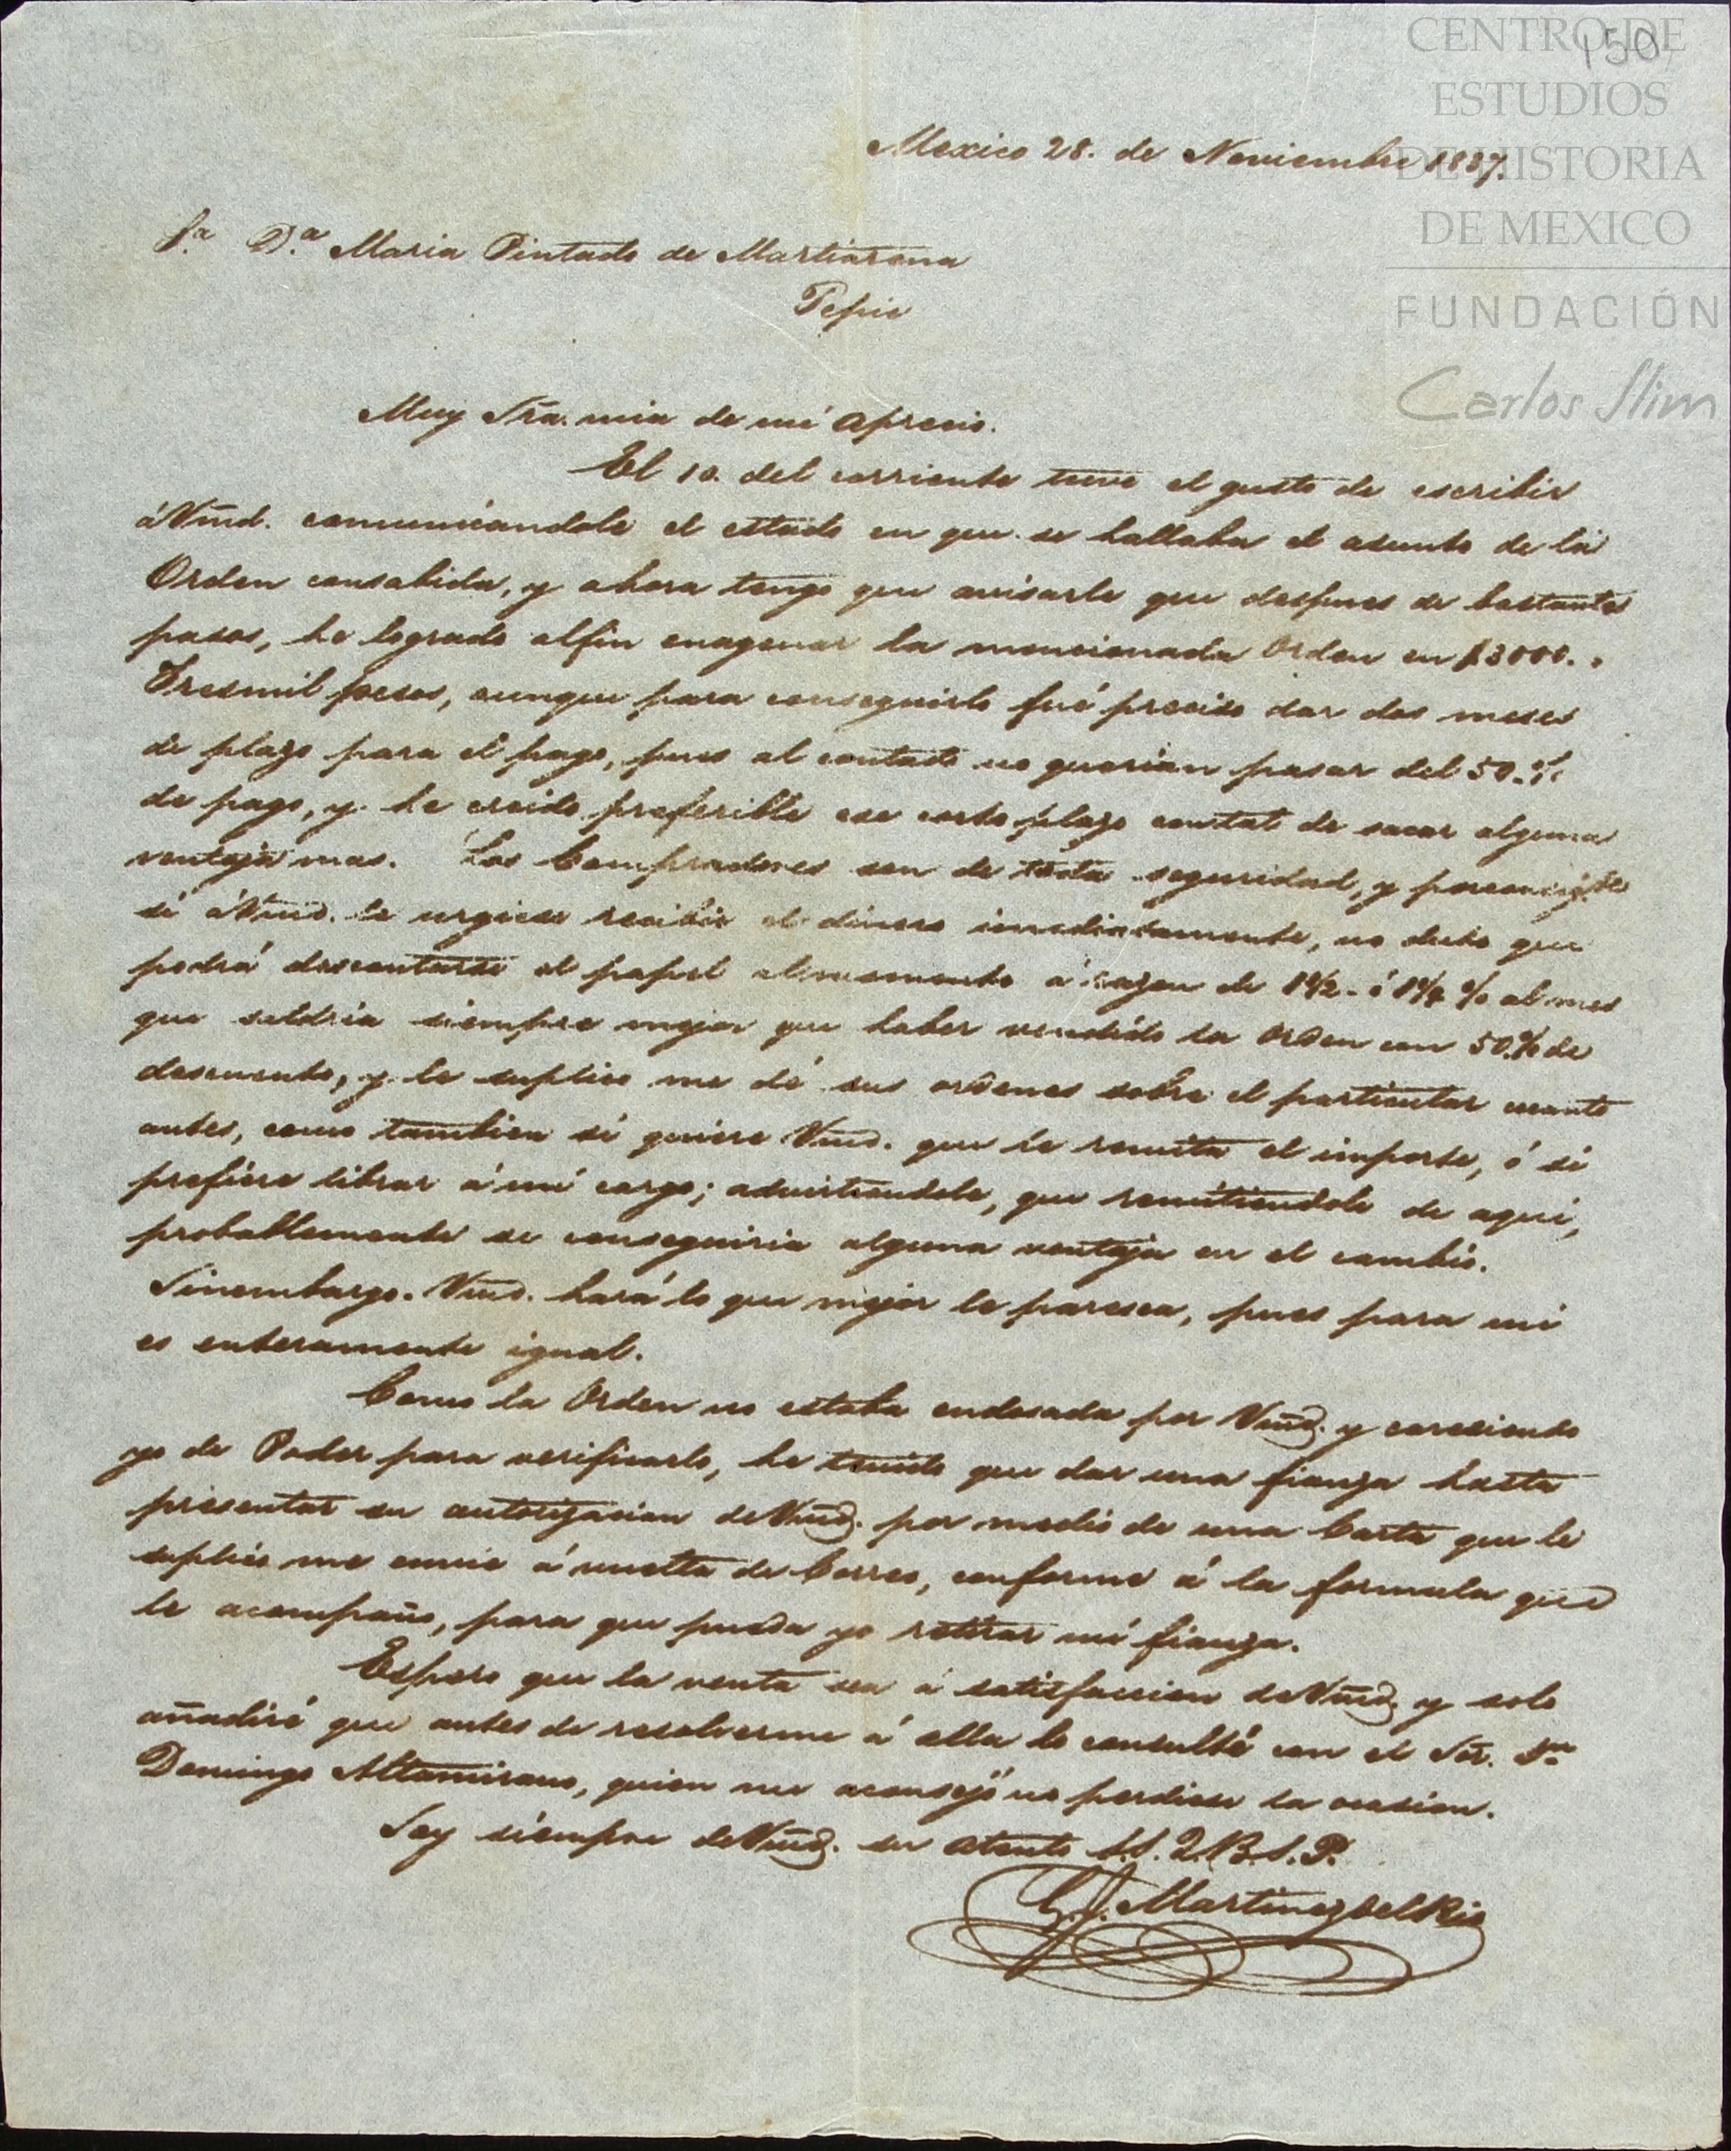 150
CENTRO DE
ESTUDIOS
DE HISTORIA
DE MEXICO
FUNDACIÓN
Carlos Slim
Mexico 28. de Noviembre 1837.
Sª. Dª. Maria Pintado de Martiarena
Tepic
Muy Sra. mia de mi aprecio.
El 10. del corriente tuve el gusto de escribir
á Vmd. comunicandole el estado en que se hallaba el asunto de la
Orden consabida, y ahora tengo que avisarle que despues de bastantes
pasos, he logrado alfin enagenar la mencionada Orden en $3000..
Tresmil pesos, aunque para conseguirlo fué preciso dar dos meses
de plazo para el pago, pues al contado no querian pasar del 50.%
de pago, y he creido preferible ese corto plazo contal de sacar alguna
ventaja mas. Los Compradores son de toda seguridad, y
si á Vmd. le urgiese recibir el dinero inmediatamente, no dudo que
podrá descontarse el papel al momento á razon de 1½ ó 1¼ % al mes
que saldria siempre mejor que haber vendido la Orden con 50.% de
descuento, y le suplico me dé sus ordenes sobre el particular cuanto
antes, como tambien si quiere Vmd. que le remita el importe, ó si
prefiere librar á mi cargo; advirtiendole, que remitiendole de aqui,
probablemente se conseguiria alguna ventaja en el cambio.
Sinembargo. Vmd. hará lo que mejor le paresca, pues para mi
es enteramente igual.
Como la Orden no estaba endosada por Vmd. y careciendo
yo de Poder para verificarlo, he tenido que dar una fianza hasta
presentar su autorizacion de Vmd. por medio de una Carta que le
suplico me envie á vuelta de Correo, conforme á la formula que
le acompaño, para que pueda yo retirar mi fianza.
Espero que la venta sea á satisfaccion de Vmd. y solo
añadiré que antes de resolverme á ella lo consulté con el Sor. Dn
Domingo Altamirano, quien me aconsejó no perdiese la ocasion.
Soy siempre de Vmd. su atento S.S. Q.B.S.P.
G. J. Martinez del Rio